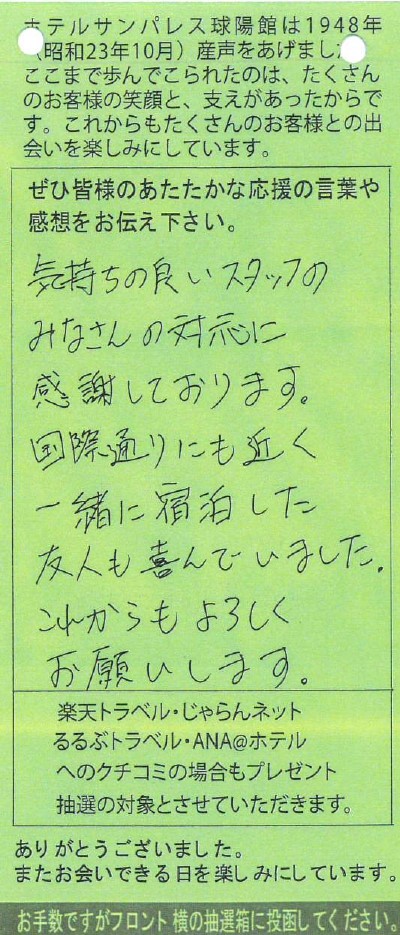 ホテルサンパレス球陽館は1948年
（昭和23年10月）産声をあげました
ここまで歩んでこられたのは、たくさん
のお客様の笑顔と、支えがあったからで
す。これからもたくさんのお客様との出
会いを楽しみにしています。
ぜひ皆様のあたたかな応援の言葉や
感想をお伝え下さい。
気持ちの良いスタッフの
みなさんの対応に
感謝しております。
国際通りにも近く
一緒に宿泊した
友人も喜んでいました。
これからもよろしく
お願いします。
楽天トラベル・じゃらんネット
るるぶトラベル・ANA@ホテル
へのクチコミの場合もプレゼント
抽選の対象とさせていただきます。
ありがとうございました。
またお会いできる日を楽しみにしています。
お手数ですがフロント横の抽選箱に投函してください。